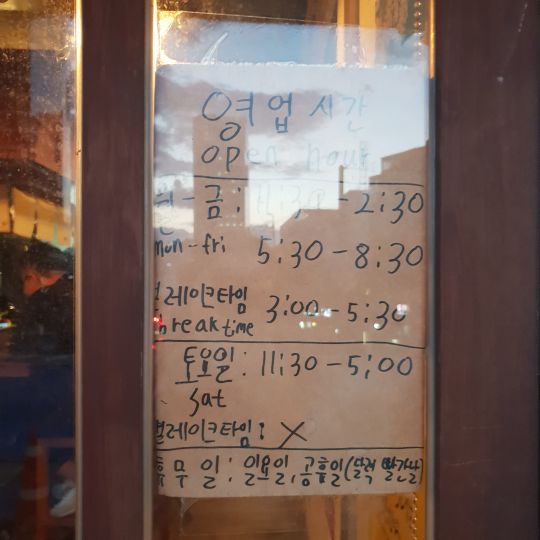 영업시간
open hour
월-금: 11:30-2:30
mon-fri 5:30-8:30
브레이크타임 3:00-5:30
break time
토요일: 11:30-5:00
sat
브레이크타임: X
휴무일: 일요일, 공휴일(달력 빨간날)